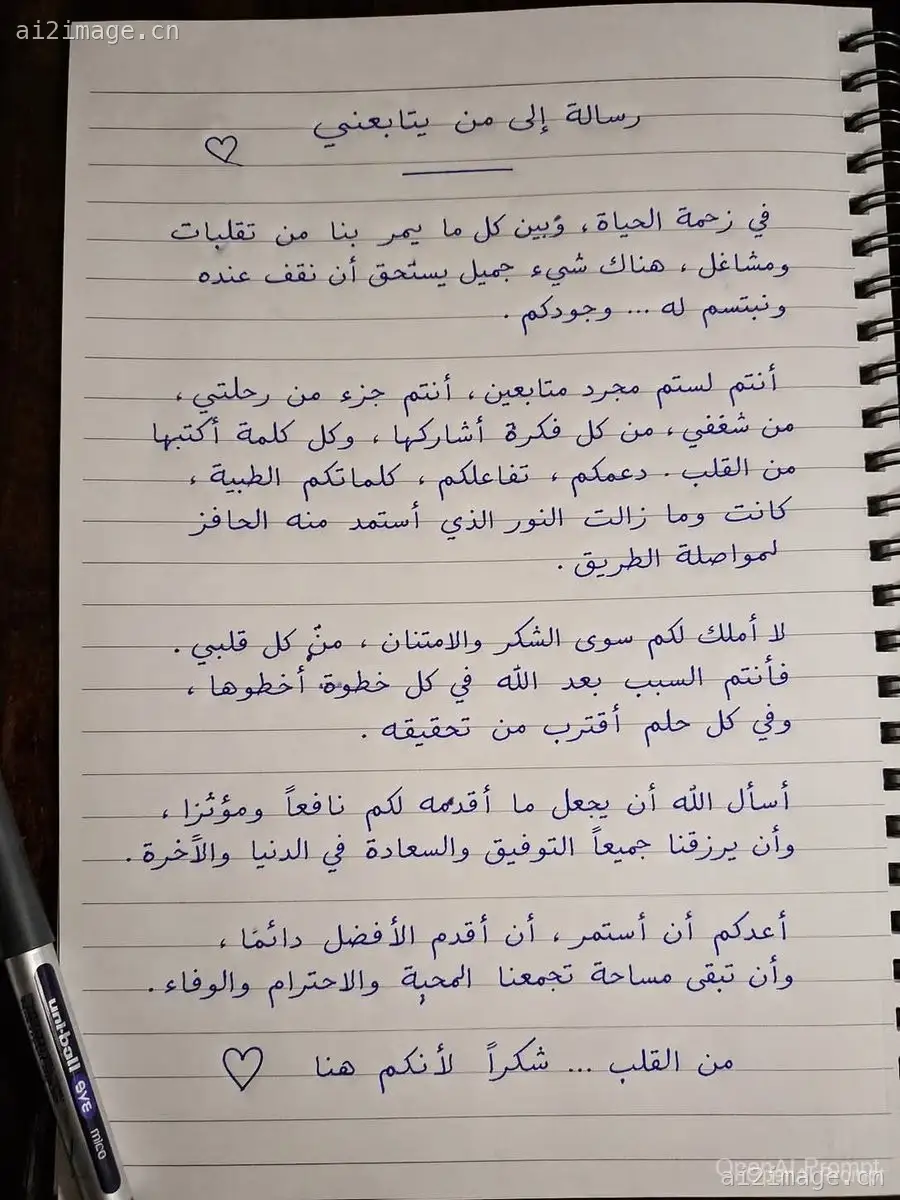 ai2image.cn
رسالة إلى من يتابعني ♡
في زحمة الحياة، وبين كل ما يمر بنا من تقلبات
ومشاغل، هناك شيء جميل يستحق أن نقف عنده
ونبتسم له ... وجودكم.
أنتم لستم مجرد متابعين، أنتم جزء من رحلتي،
من شغفي، من كل فكرة أشاركها، وكل كلمة أكتبها
من القلب. دعمكم، تفاعلكم، كلماتكم الطيبة،
كانت وما زالت النور الذي أستمد منه الحافز
لمواصلة الطريق.
لا أملك لكم سوى الشكر والامتنان، من كل قلبي.
فأنتم السبب بعد الله في كل خطوة أخطوها،
وفي كل حلم أقترب من تحقيقه.
أسأل الله أن يجعل ما أقدمه لكم نافعاً ومؤثرا،
وأن يرزقنا جميعاً التوفيق والسعادة في الدنيا والآخرة.
أعدكم أن أستمر، أن أقدم الأفضل دائمًا،
وأن تبقى مساحة تجمعنا المحبة والاحترام والوفاء.
من القلب ... شكراً لأنكم هنا ♡
uni-ball eye micro
OpenAI Prompt
ai2image.cn